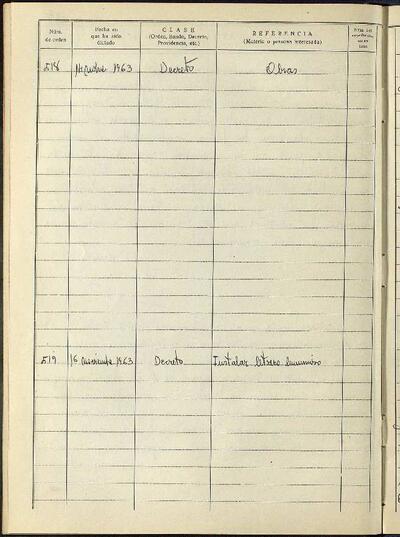 Núm. de orden
Fecha en que ha sido dictado
CLASE
(Orden, Bando, Decreto, Providencia, etc.)
REFERENCIA
(Materia o persona interesada)
518 1963 Decreto Obras
519 16 1963 Decreto Instalar letrero luminoso